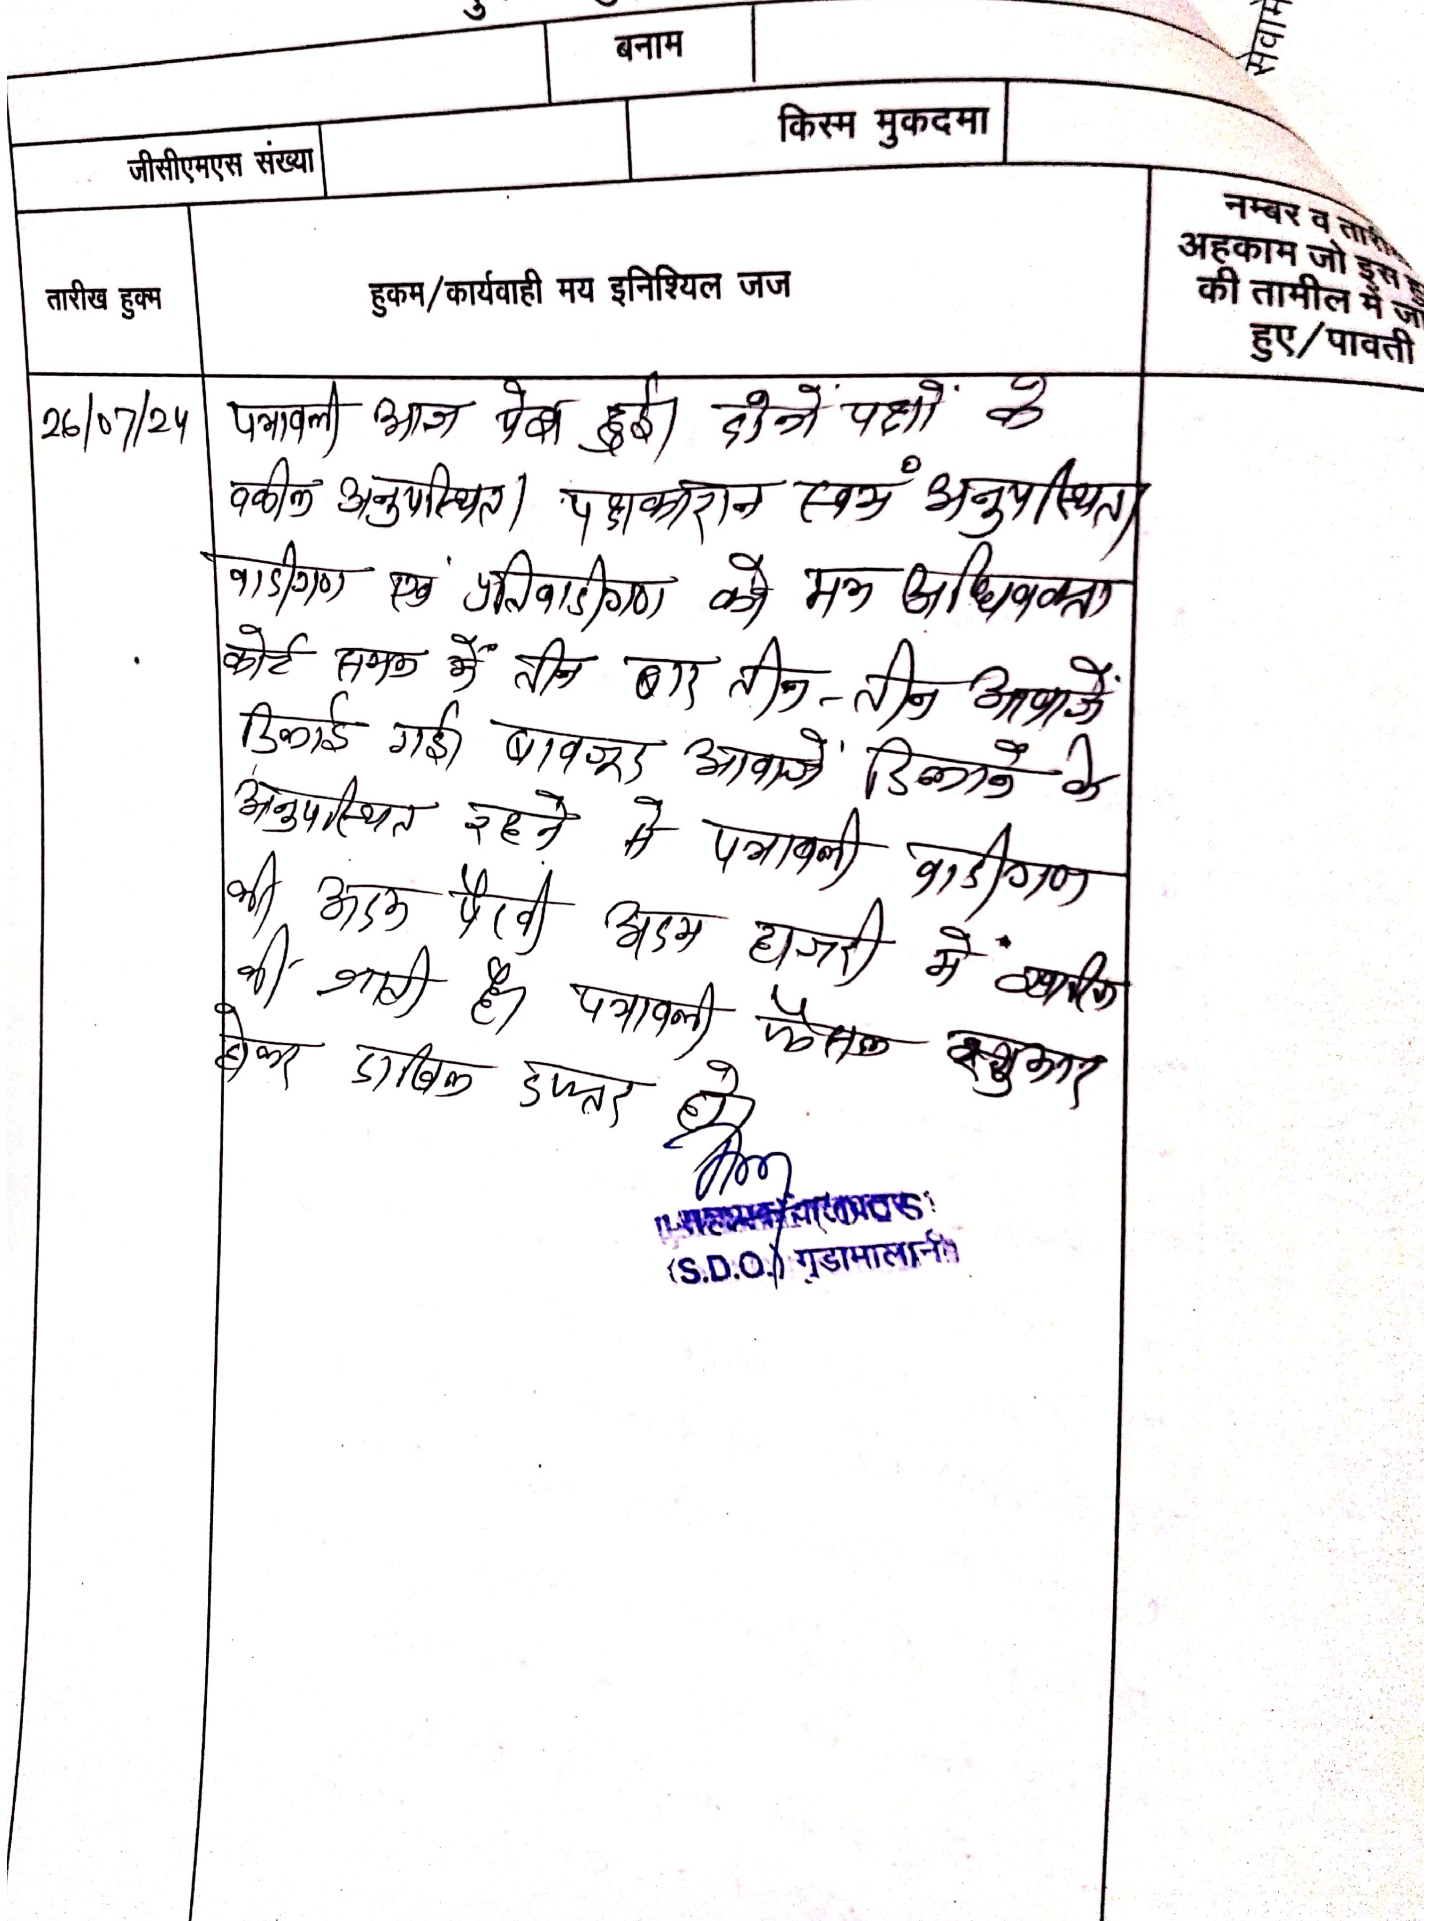 बनाम
किस्म मुकदमा
जीसीएमएस संख्या
तारीख हुक्म
हुकम/कार्यवाही मय इनिश्यिल जज
नम्बर व तारी
अहकाम जो इस हु
की तामील में जा
हुए/पावती
26/07/24
पत्रावली आज पेश हुई। दोनों पक्षों के
वकील अनुपस्थित। पक्षकारान स्वयं अनुपस्थित।
वादीगण एवं प्रतिवादीगण को मय अधिवक्ता
कोर्ट समय में तीन बार तीन-तीन आवाजें
दिलाई गई। बावजूद आवाजें दिलाने के
अनुपस्थित रहने से पत्रावली वादीगण
की अदम पैरवी अदम हाजरी में खारिज
की जाती है। पत्रावली फैसल शुमार
होकर दाखिल दफ्तर हो।
(S.D.O.) गुडामालानी